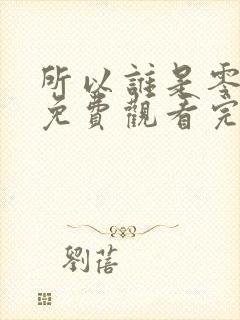 所以誰是零
免費觀看完
劉蓓